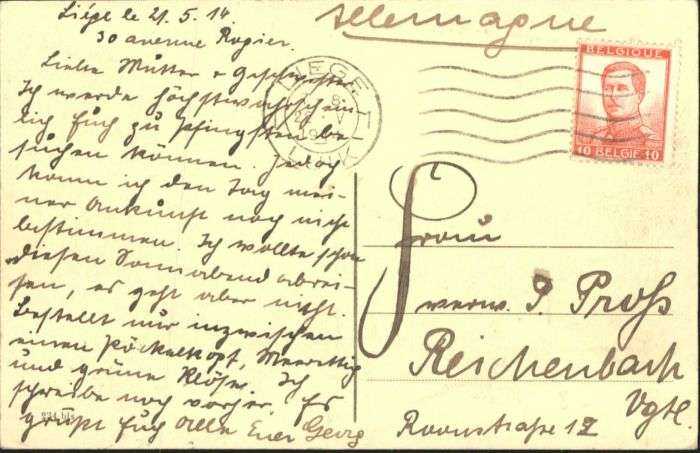 Liége le 21.5.14
30 avenue Rogier.
Liebe Mutter & Geschwister
Ich werde höchstwahrschein
lich Euch zu Pfingsten be-
suchen können. Jedoch
kann ich den Tag mei-
ner Ankunft noch nicht
bestimmen. Ich wollte schon
diesen Sonnabend abrei-
sen, es geht aber nicht.
Bestellt nur inzwischen
einen Pöckelkopf, Meerettig
und grüne Klöse. Ich
schreibe noch vorher. Es
grüßt Euch Alle Euer Georg
Allemagne
BELGIQUE
10 BELGIË 10
LIEGE
Frau
verw. P. Proß
Reichenbach
Vgtl.
Roonstraße 12
224 bis